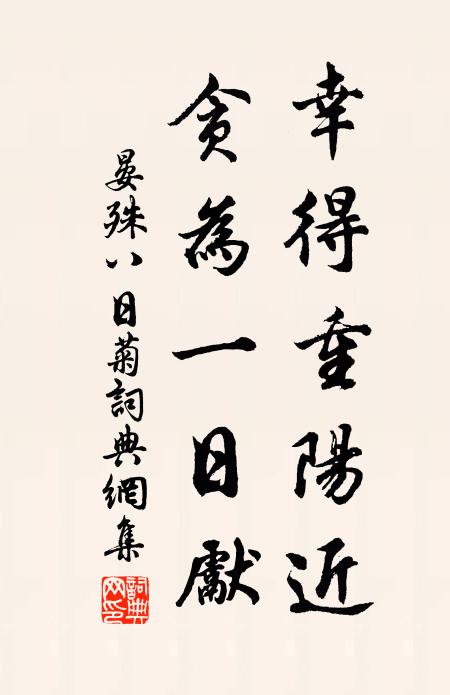 幸得重陽近
貪為一日獻
晏殊八日菊詞典網集
詞典网印